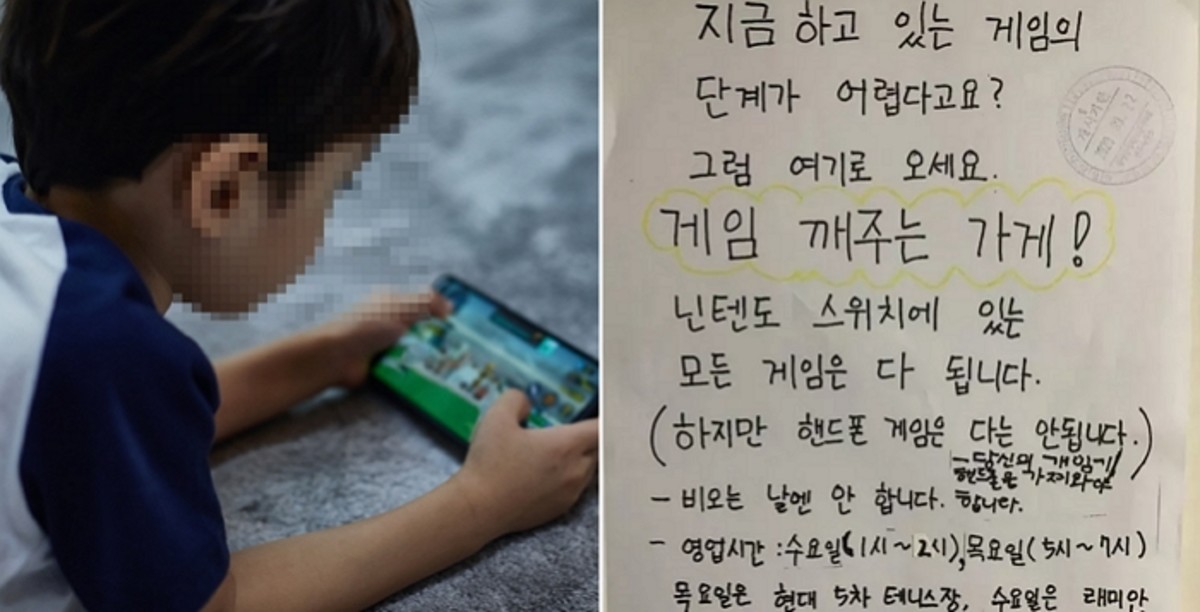 지금 하고 있는 게임의
단계가 어렵다고요?
그럼 여기로 오세요.
게임 깨주는 가게!
닌텐도 스위치에 있는
모든 게임은 다 됩니다.
(하지만 핸드폰 게임은 다는 안됩니다.)
- 당신의 게임기/
핸드폰은 가져와야
합니다.
- 비오는 날엔 안 합니다.
- 영업시간 : 수요일(1시~2시), 목요일(5시~7시)
목요일은 현대 5차 테니스장, 수요일은 래미안